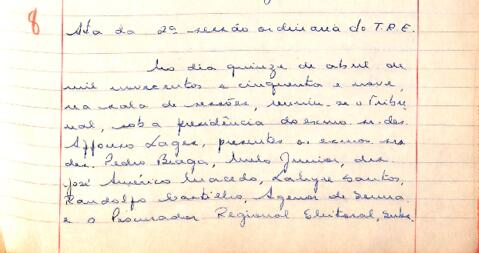 8
Ata da 2ª sessão ordinária do T.R.E.
No dia quinze de abril de
mil novecentos e cinquenta e nove,
na sala de sessões, reuniu-se o Tribu
nal, sob a presidência do exmo. sr. des.
Affonso Lages, presentes os exmos. srs.
des. Pedro Braga, Melo Junior, drs.
José Américo Macedo, Labyre Santos,
Randolfo Castilho, Agenor de Senna
e o Procurador Regional Eleitoral, subs.